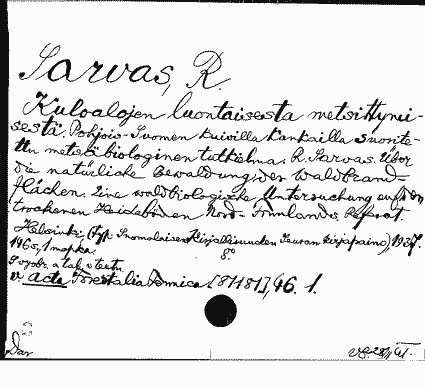 Sarvas, R.
Kuloalojen luontaisesta metsittymi-
sestä. Pohjois-Suomen kuivilla kankailla suorite-
ttu metsäbiologinen tutkielma. R. Sarvas. Über
die natürliche Bewaldung der Waldbrand-
flächen. Eine waldbiologische Untersuchung auf den
trockenen Heideböden Nord-Finnlands. Referat.
Helsinki (Typ. Suomalaisen Kirjallisuuden Seuran kirjapaino), 1937.
146 s., 1 mapka. 8°
v. Acta Forestalia Fennica [81181], 46. 1.
Dar